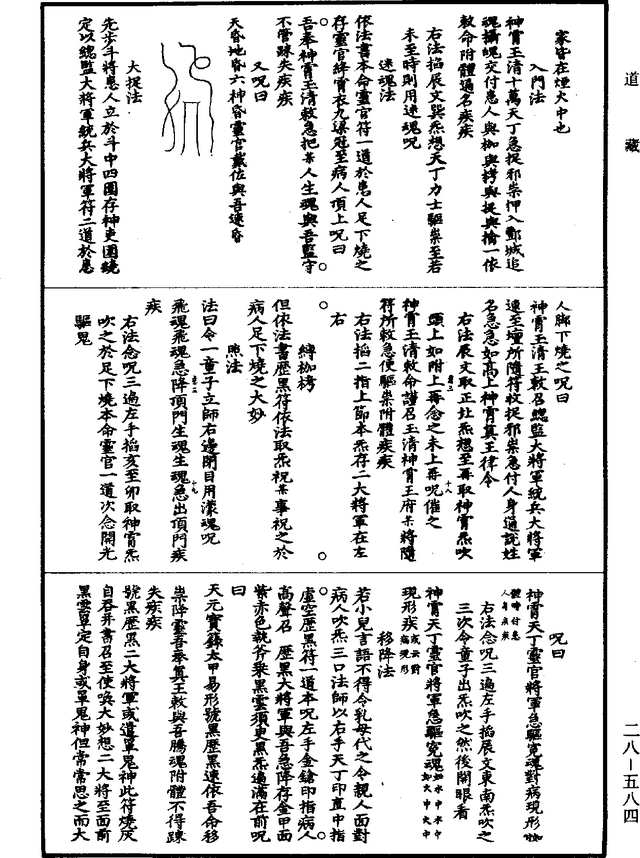 道藏
家皆在煙火中也
入門法
神霄玉清十萬天丁急捉邪祟押入酆城追
魂攝魄交付患人與枷與拷與捉與擒一依
敕命附體通名疾疾
右法掐辰文巽炁想天丁力士驅祟至若
未至時則用迷魂呪
迷魂法
依法書本命靈官符一道於患人足下燒之
存靈官絳霄衣九梁冠至病人頂上呪曰
吾奉神霄玉清敕急把某人生魂與吾監守
不管踈失疾疾
又呪曰
天昏地昏六神昏靈官戴位與吾速昏
大捉法
先步斗將患人立於斗中四圍存神吏圍繞
定以總監大將軍統兵大將軍符二道於患
人脚下燒之呪曰
神霄玉清王敕召總監大將軍統兵大將軍
速至壇所隨符枚捉邪祟急付人身通說姓
名急急如高上神霄真王律令
右法辰文取正炁想至再取神霄炁吹
頭上如附上再念之未上再呪催之
神霄玉清敕命謹召玉清神霄王府某將隨
符所敕急便驅祟附體疾疾
右法掐二指上節本炁存二大將軍在左
右
縛枷栲
但依法書歷黑符依法取炁祝某事祝之於
病人足下燒之大妙
照法
法曰令一童子立師右邊閉目用濛魂呪
飛魂飛魂急降頂門生魂生魂急出頂門疾
疾
右法念呪三遍左手掐亥至卯取神霄炁
吹之於足下燒本命靈官一道次念開光
驅鬼
呪曰
神霄天丁靈官將軍急驅冤魂對病現形
右法念呪三遍左手掐辰文東南炁吹之
三次令童子出炁吹之然後開眼看
神霄天丁靈官將軍急驅冤魂如水中火中
現形疾或云對病現形
移降法
若小兒言語不得令乳母代之令親人面對
病人吹炁三口法師以右手天丁印直中指
虛空歷黑符一道本呪左手金鎗印指病人
高聲召歷黑大將軍與吾急降存金甲面
紫赤色執斧乘黑雲須臾黑炁遍滿在前呪
曰
天元寶籙太甲易形號黑歷黑速依吾命移
祟降靈吾奉真王敕與吾騰魂附體不得踈
失疾疾
號黑歷黑二大將軍或遣單鬼神此符燒灰
自吞并書召至使喚大妙想二大將至面前
黑雲罩定自身或單鬼神但常常思之而大
二八—五八四